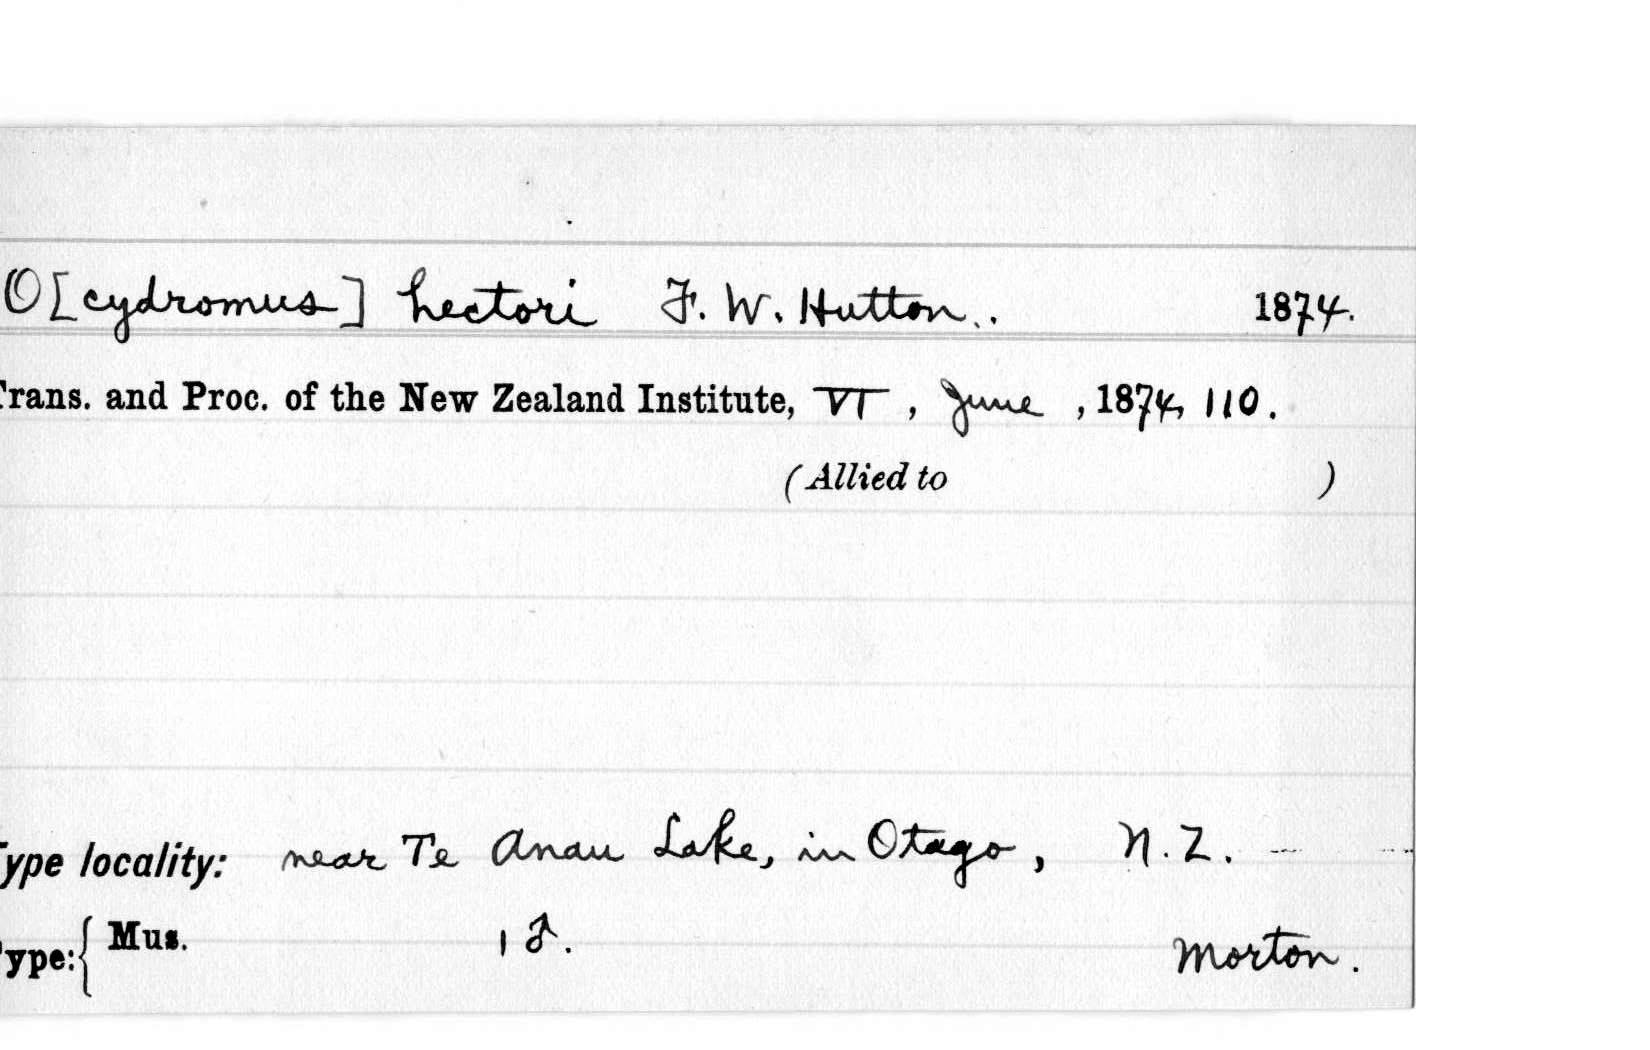 O[cydromus] hectori F. W. Hutton.. 1874.
Trans. and Proc. of the New Zealand Institute, VI, June, 1874, 110.
(Allied to )
Type locality: near Te Anau Lake, in Otago, N.Z.
Type: { Mus. 1 ♂. Morton.